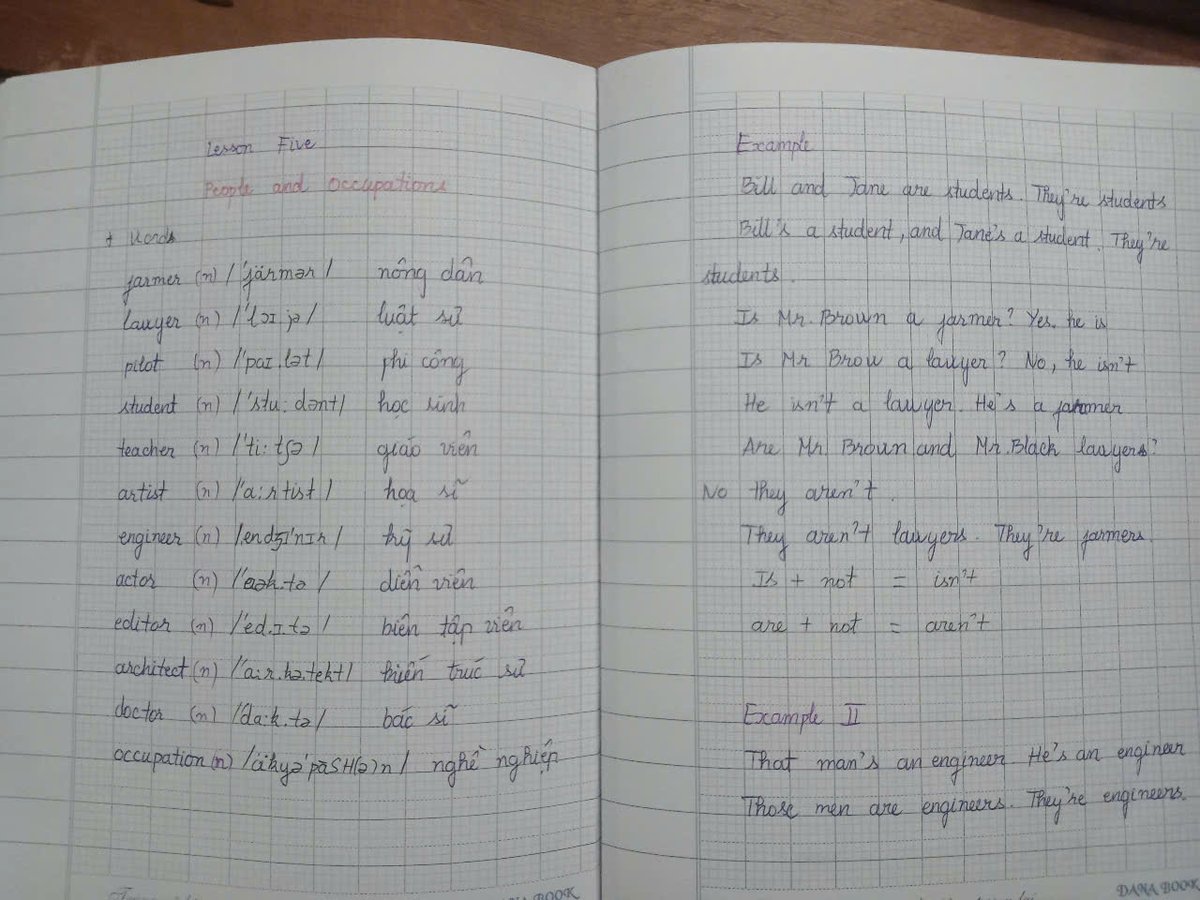 Lesson Five
People and Occupations
+ Words
farmer (n) /'färmər/ nông dân
lawyer (n) /'lɔɪ.jə/ luật sư
pilot (n) /'paɪ.lət/ phi công
student (n) /'stu:dənt/ học sinh
teacher (n) /'ti:tʃə/ giáo viên
artist (n) /'a:rtist/ họa sĩ
engineer (n) /endʒɪ'nɪr/ kỹ sư
actor (n) /'æk.tə/ diễn viên
editor (n) /'ed.ɪ.tə/ biên tập viên
architect (n) /'a:r.kə.tekt/ kiến trúc sư
doctor (n) /da:k.tə/ bác sĩ
occupation (n) /äkyə'pāSH(ə)n/ nghề nghiệp
Example
Bill and Jane are students. They're students
Bill's a student, and Jane's a student. They're
students.
Is Mr. Brown a farmer? Yes, he is
Is Mr Brow a lawyer? No, he isn't
He isn't a lawyer. He's a farmer
Are Mr Brown and Mr. Black lawyers?
No they aren't.
They aren't lawyers. They're farmers.
Is + not = isn't
are + not = aren't
Example II
That man's an engineer. He's an engineer
Those men are engineers. They're engineers.
DANA BOOK